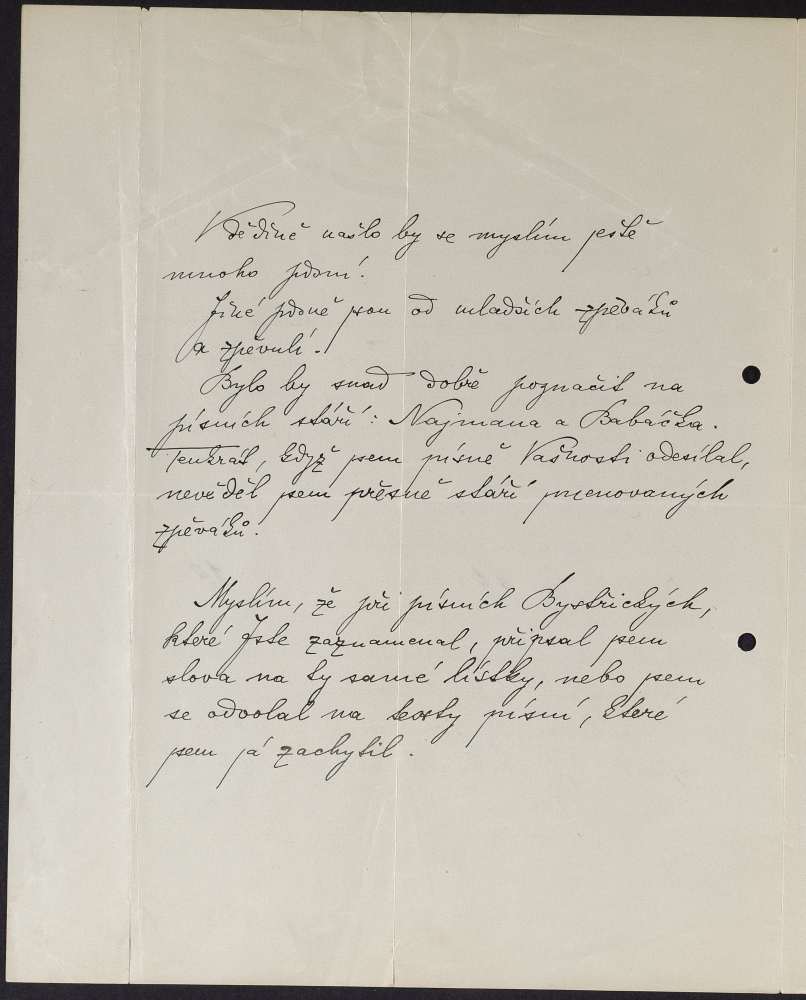 V dědině našlo by se myslím ještě
mnoho písní.
Jiné písně jsou od mladších zpěváků
a zpěvulí.
Bylo by snad dobře poznačit na
písních stáří: Najmana a Babáčka.
Tenkrát, když jsem písně Vašnosti odesílal,
nevěděl jsem přesně stáří jmenovaných
zpěváků.
Myslím, že při písních Bystřických,
které Jste zaznamenal, připsal jsem
slova na ty samé lístky, nebo jsem
se odvolal na texty písní, které
jsem já zachytil.